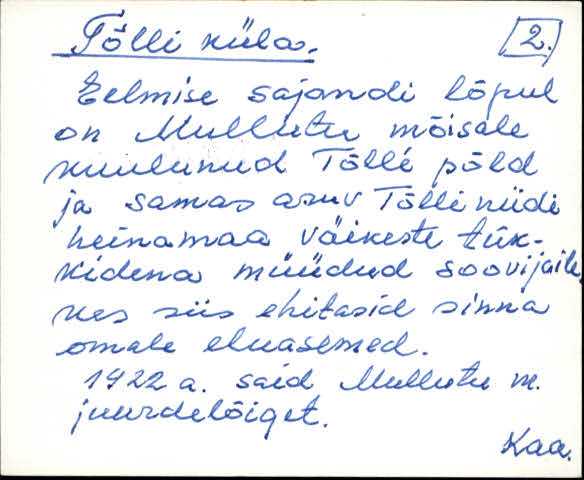 Tõlli küla. 2.
Eelmise sajandi lõpul
on Mullutu mõisale
kuulunud Tõlli põld
ja samas asuv Tõlli niidi
heinamaa väikeste tük-
kidena müüdud soovijaile,
kes siis ehitasid sinna
omale eluasemed.
1922 a. said Mullutu m.
juurdelõiget.
Kaa.